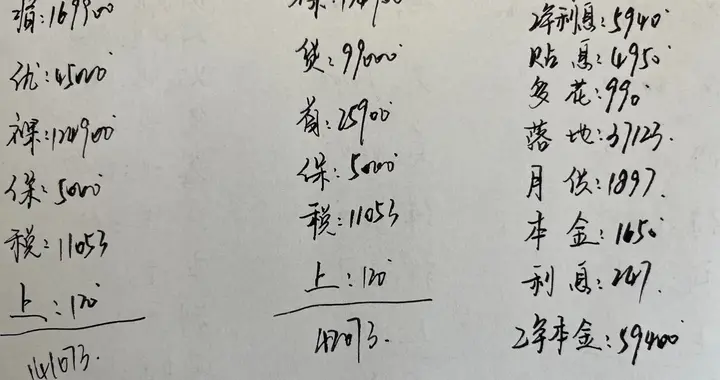 指:169900
优:45000
裸:124900
保:5000
税:11053
上:120
141073.
裸:124900
贷:99000
首:25900
保:5000
税:11053
上:120
42073.
2年利息:5940
贴息:4950
多花:990
落地:37123.
月供:1897.
本金:1650
利息:247.
2年本金:59400